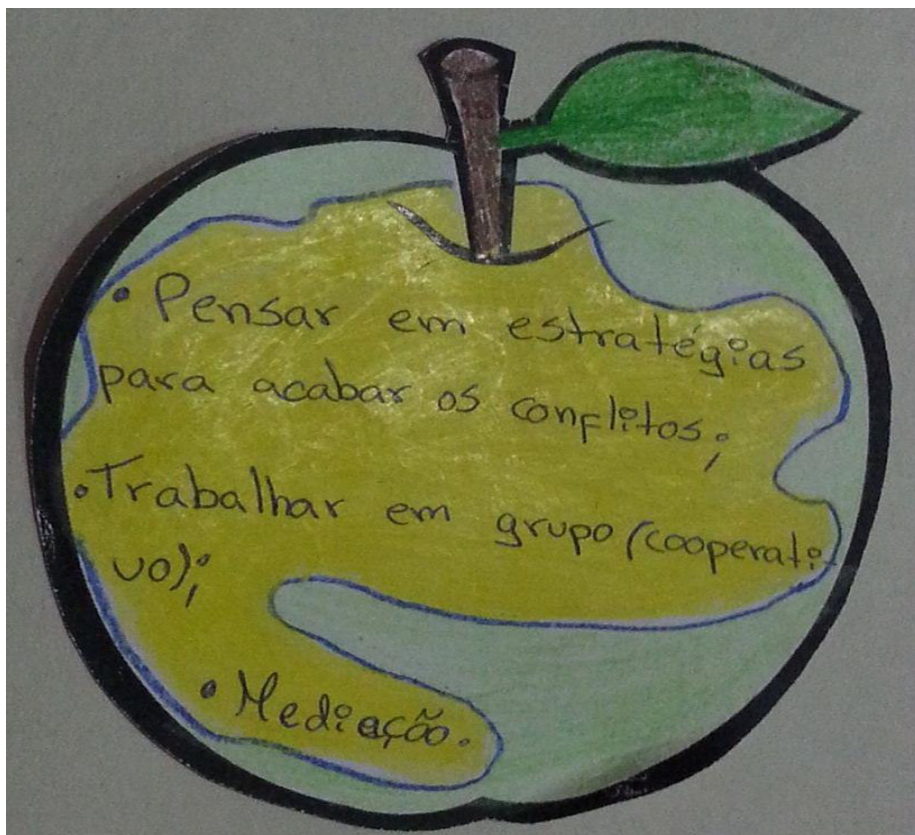 • Pensar em estratégias
para acabar os conflitos;
• Trabalhar em grupo (cooperati-
vo);
• Mediação.